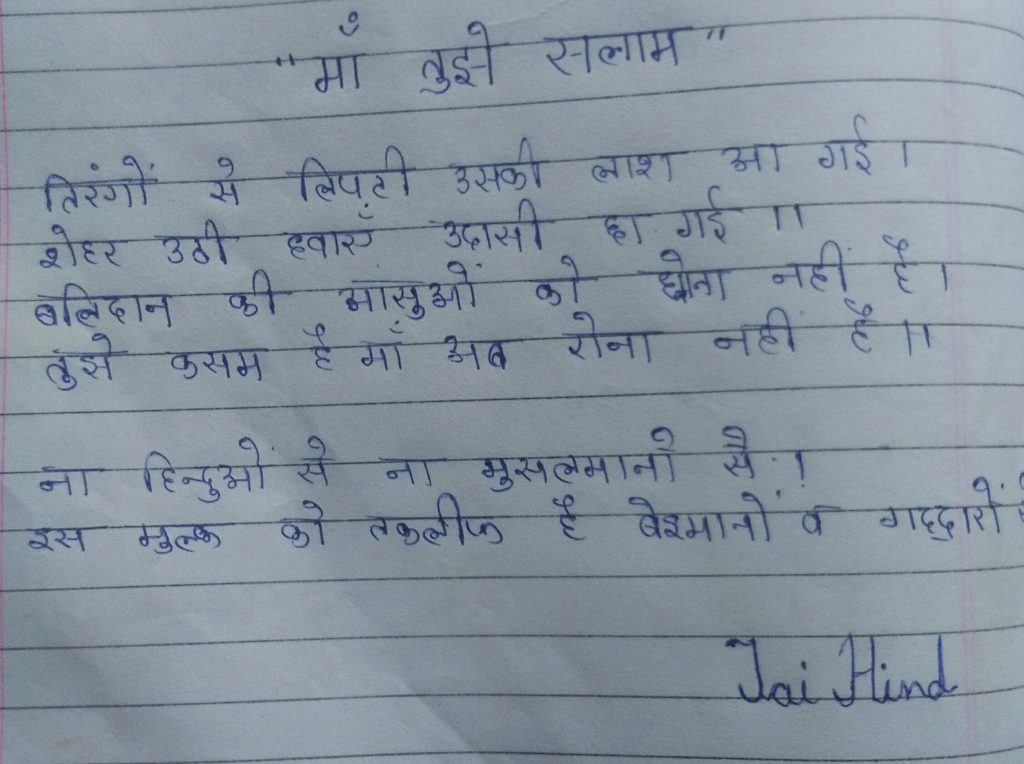 "माँ तुझे सलाम"
तिरंगों से लिपटी उसकी लाश आ गई ।
शेहर उठी हवाएँ उदासी छा गई ॥
बलिदान की आंसुओं को धोना नहीं है ।
तुझे कसम है माँ अब रोना नहीं है ॥
ना हिन्दुओं से ना मुसलमानों से !
इस मुल्क को तकलीफ है बेइमानों व गद्दारों
Jai Hind